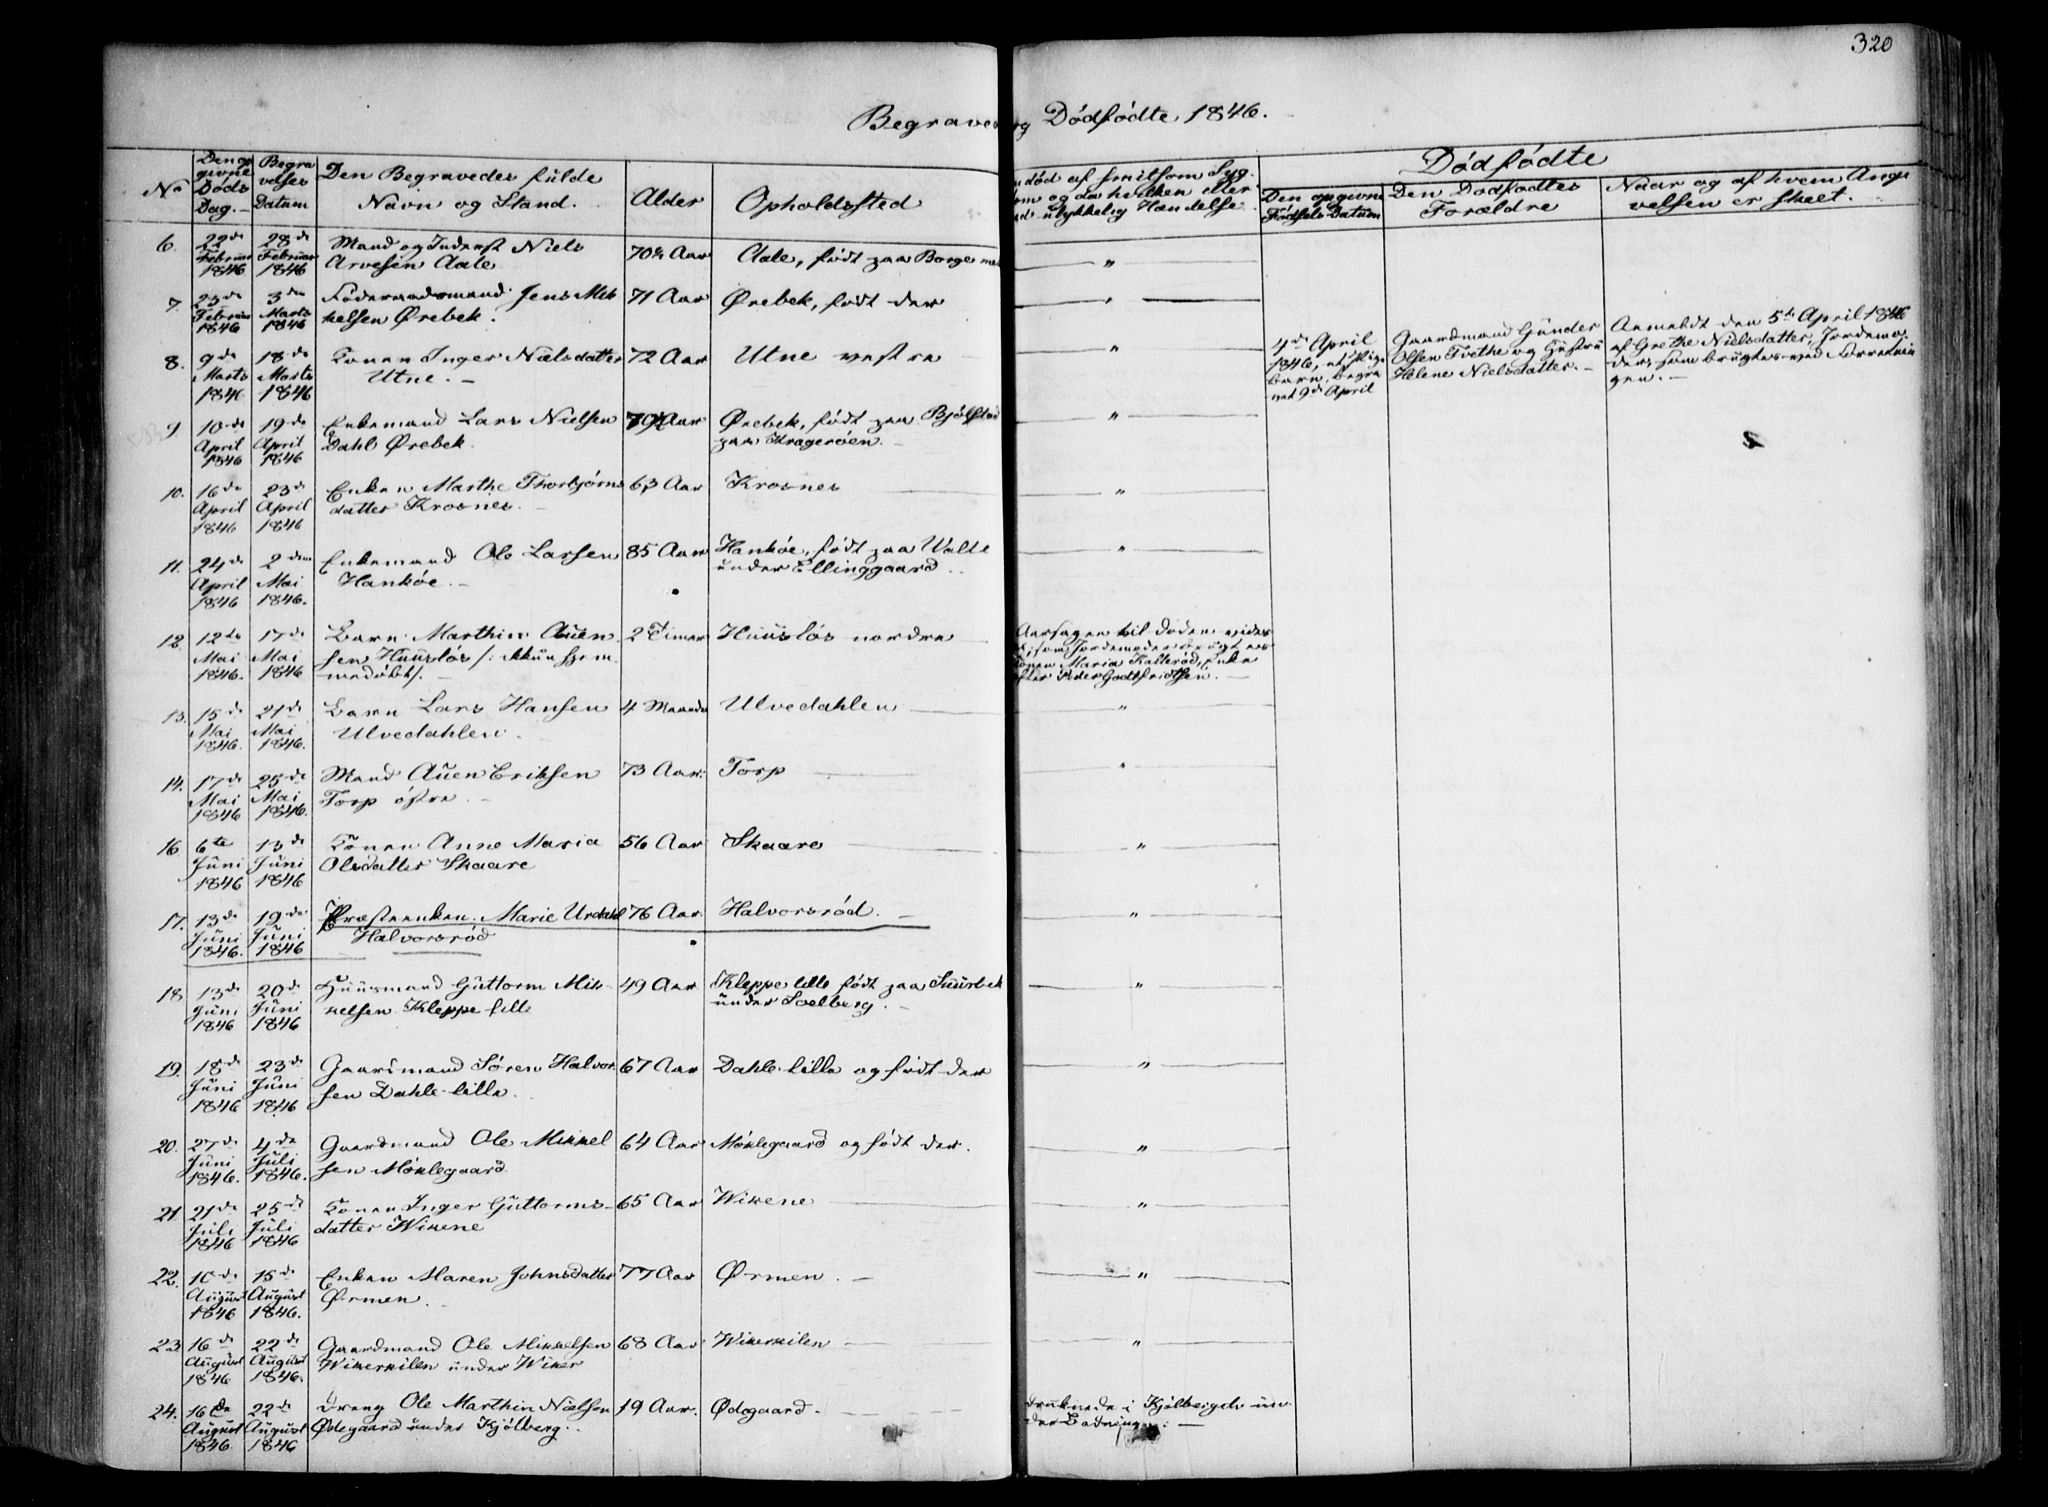 320
Begravede og Dödfödte, 1846.
No
Den op
givne
Döds
Dag.
Begra
velses
Datum
Den Begravedes fulde
Navn og Stand.
Alder
Opholdssted
död af smitsom Syg-
og da hvilken eller
ulykkelig Hændelse
Dödfödte
Den opgivne
Födsels Datum
Den Dödfödtes
Forældre
Naar og af hvem Angi
velsen er skeet.
6. 22de Februar 1846 28de Februar 1846 Mand og Inderst Niels
Arvesen Aale 70¾ Aar Aale, född paa Borge
7. 25de Februar 1846 3die Marts 1846 Föderaadsmand Jens Mik
kelsen Ørebek. 71 Aar Ørebek, födt der
8. 9de Marts 1846 18de Marts 1846 Konen Inger Nielsdatter
Utne. 72 Aar Utne vestre
4de April
1846, et
Barn, begra
vet 9de April
Gaardmand Gunder
Olsen Tvethe og Hustru
Helene Nielsdatter.
Anmeldt den 5te April 1846
af Grethe Nielsdatter, Jordemo-
der, som brugtes ved Forretnin
gen.
9 10de April 1846 19de April 1846 Enkemand Lars Nielsen
Dahl Ørebek. Aar Ørebek, födt paa Bjölstad
paa Kragerøen.
10. 16de April 1846 23de April 1846 Enken Marthe Thorbjörns
datter Krosnes. 63 Aar Krosnes
11. 24de April 1846 2den Mai 1846. Enkemand Ole Larsen
Hankøe. 85 Aar Hankøe, födt paa Walle
under Ellinggaard.
12. 12te Mai 1846. 17de Mai 1846 Barn Marthin Auen
sen Huuslös /: kkun hjem
medöbt/. 2 Timer Huuslös nordre
Aarsagen til Döden vides
som Jordemoder brugtes
Konen Maria Kallerød, Enke
efter Peder Godtfridtsen.
13. 15de Mai 1846. 21de Mai 1846. Barn Lars Hansen
Ulvedahlen. 4 Maaneder Ulvedahlen
14. 17de Mai 1846 25de Mai 1846. Mand Auen Eriksen
Torp östre. 73 Aar. Torp
16 6te Juni 1846 13de Juni 1846 Konen Anne Maria
Olsdatter Skaare 56 Aar Skaare
17. 13de Juni 1846. 19de Juni 1846 Præsteenken Marie Urdahl
Halvorsröd 76 Aar. Halvorsröd.
18 13de Juni 1846 20de Juni 1846 Huusmand Guttorm Mik-
kelsen Kleppe lille 49 Aar Kleppe lille födt paa Suurbek
under Soelberg.
19. 18de Juni 1846 23de Juni 1846 Gaardmand Sören Halvor
sen Dahle lille. 67 Aar Dahle lille og födt der
20. 27de Juni 1846. 4de Juli 1846. Gaardmand Ole Mikkel
sen Möklegaard 64 Aar Möklegaard og födt der.
21 21de Juli 1846 25de Juli 1846 Konen Inger Guttorms-
datter Wikene 65 Aar Wikene
22. 10de August 1846 15de August 1846. Enken Maren Johnsdatter
Ørmen. 77 Aar Ørmen.
23 16de August 1846 22de August 1846. Gaardmand Ole Mikkelsen
Wikerkilen under Wiker 68 Aar Wikerkilen
24. 16de August 1846 22de August 1846 Dreng Ole Marthin Nielsen
Ødegaard under Kjölberg. 19 Aar. Ødegaard.
druknede i Kjölbergelv un-
der Badning.